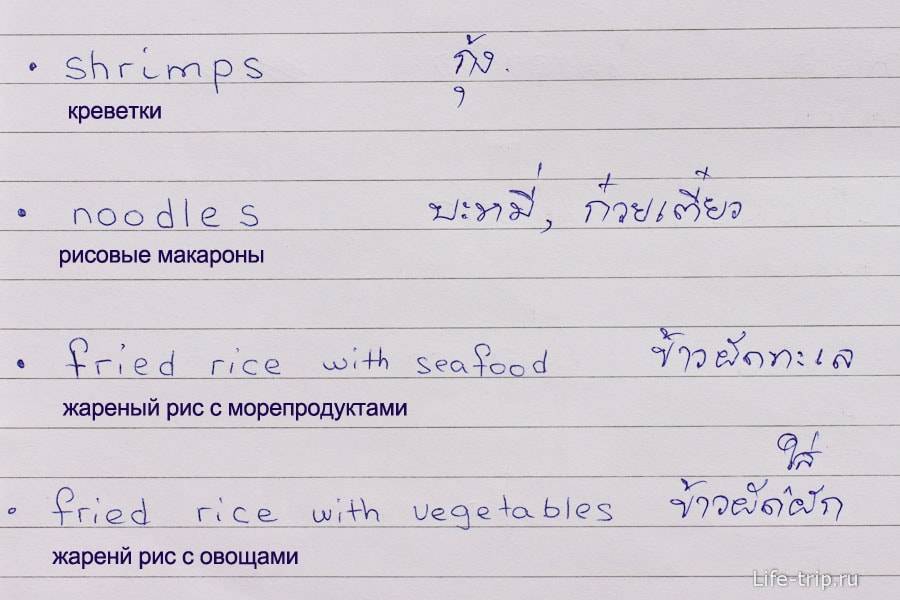 • shrimps กุ้ง.
креветки
• noodles บะหมี่, ก๋วยเตี๋ยว
рисовые макароны
• fried rice with seafood ข้าวผัดทะเล
жареный рис с морепродуктами
ใส่
• fried rice with vegetables ข้าวผัดผัก
жаренй рис с овощами
Life-trip.ru